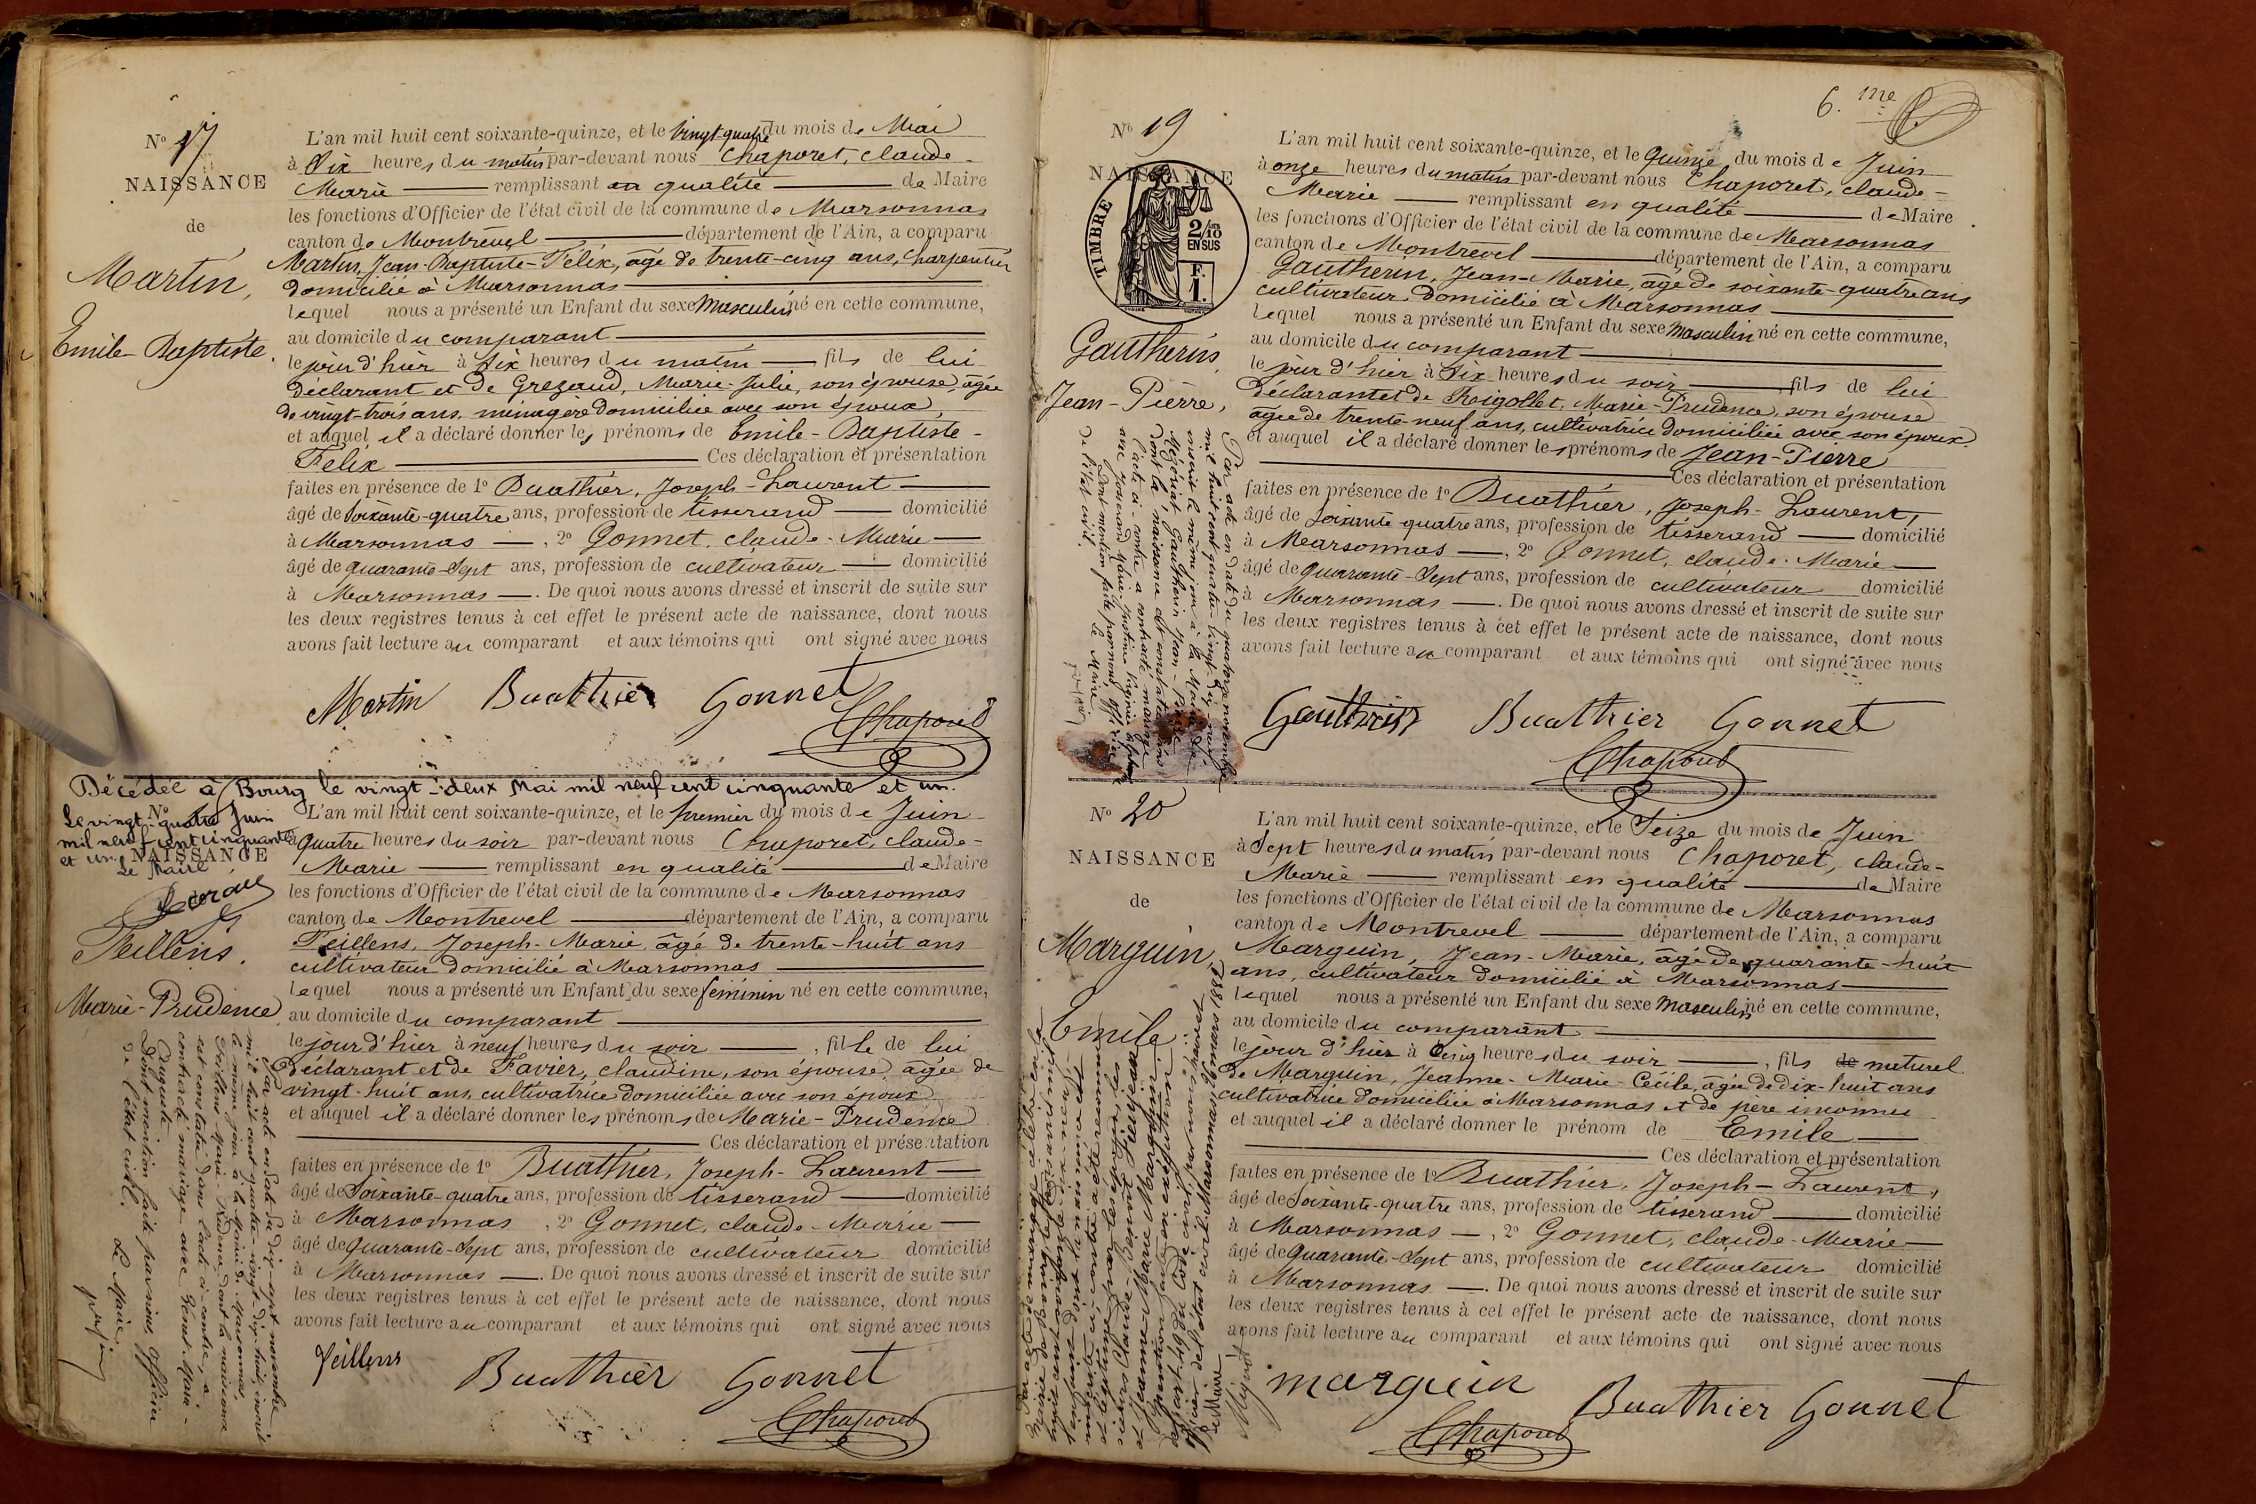 N° 17
NAISSANCE
de
Martin,
Emile-Baptiste.
L'an mil huit cent soixante-quinze, et le Vingt-quatre du mois de Mai
à Six heures du matin par-devant nous Chaporet, claude-
Marie remplissant en qualité de Maire
les fonctions d'Officier de l'état civil de la commune de Marsonnas
canton de Montrevel département de l'Ain, a comparu
Martin, Jean-Baptiste-Félix, âgé de trente-cinq ans, Charpentier
domicilié à Marsonnas
lequel nous a présenté un Enfant du sexe Masculin né en cette commune,
au domicile du comparant
le jour d'hier à Six heures du matin fils de lui
déclarant et de Grezaud, Marie-Julie, son épouse, âgée
de vingt-trois ans, ménagère domiciliée avec son époux,
et auquel il a déclaré donner les prénoms de Emile-Baptiste-
Félix Ces déclaration et présentation
faites en présence de 1° Buathier, Joseph-Laurent
âgé de Soixante-quatre ans, profession de tisserand domicilié
à Marsonnas, 2° Gonnet, claude-Marie
âgé de quarante-Sept ans, profession de cultivateur domicilié
à Marsonnas. De quoi nous avons dressé et inscrit de suite sur
les deux registres tenus à cet effet le présent acte de naissance, dont nous
avons fait lecture au comparant et aux témoins qui ont signé avec nous
Martin Buathier Gonnet
Chaporet
Décédée à Bourg le vingt-deux Mai mil neuf cent cinquante et un.
Le vingt-quatre Juin
mil neuf cent cinquante
et un. Le Maire
N°
NAISSANCE
Teillens.
Marie-Prudence
L'an mil huit cent soixante-quinze, et le premier du mois de Juin
à quatre heures du soir par-devant nous Chaporet, claude-
Marie remplissant en qualité de Maire
les fonctions d'Officier de l'état civil de la commune de Marsonnas
canton de Montrevel département de l'Ain, a comparu
Teillens, Joseph-Marie, âgé de trente-huit ans
cultivateur domicilié à Marsonnas
lequel nous a présenté un Enfant du sexe féminin né en cette commune,
au domicile du comparant
le jour d'hier à neuf heures du soir, fille de lui
déclarant et de Favier, claudine, son épouse, âgée de
vingt-huit ans, cultivatrice domiciliée avec son époux
et auquel il a déclaré donner les prénoms de Marie-Prudence
Ces déclaration et présentation
faites en présence de 1° Buathier, Joseph-Laurent
âgé de Soixante-quatre ans, profession de tisserand domicilié
à Marsonnas, 2° Gonnet, claude-Marie
âgé de quarante-Sept ans, profession de cultivateur domicilié
à Marsonnas. De quoi nous avons dressé et inscrit de suite sur
les deux registres tenus à cet effet le présent acte de naissance, dont nous
avons fait lecture au comparant et aux témoins qui ont signé avec nous
Teillens Buathier Gonnet
Chaporet
Par acte en date du dix-sept novembre
mil huit cent quatre-vingt-dix-huit, inscrit
le même jour à la Mairie de Marsonnas,
Teillens Marie-Prudence dont la naissance
est constatée dans l'acte ci-contre, a
contracté mariage avec Genet Marie-
Auguste
Dont mention faite par nous, officier
de l'état civil.
Le Maire,
6.me
N° 19
NAISSANCE
TIMBRE
2/10
EN SUS
F.
1.
Gautherin,
Jean-Pierre,
L'an mil huit cent soixante-quinze, et le Quinze du mois de Juin
à onze heures du matin par-devant nous Chaporet, claude-
Marie remplissant en qualité de Maire
les fonctions d'Officier de l'état civil de la commune de Marsonnas
canton de Montrevel département de l'Ain, a comparu
Gautherin, Jean-Marie, âgé de soixante-quatre ans
cultivateur domicilié à Marsonnas
lequel nous a présenté un Enfant du sexe masculin né en cette commune,
au domicile du comparant
le jour d'hier à Six heures du soir, fils de lui
déclarant et de Rigollet, Marie-Prudence, son épouse
âgée de trente-neuf ans, cultivatrice domiciliée avec son époux
et auquel il a déclaré donner les prénoms de Jean-Pierre
Ces déclaration et présentation
faites en présence de 1° Buathier, Joseph-Laurent,
âgé de Soixante-quatre ans, profession de tisserand domicilié
à Marsonnas, 2° Gonnet, claude-Marie
âgé de quarante-Sept ans, profession de cultivateur domicilié
à Marsonnas. De quoi nous avons dressé et inscrit de suite sur
les deux registres tenus à cet effet le présent acte de naissance, dont nous
avons fait lecture au comparant et aux témoins qui ont signé avec nous
Gautherin Buathier Gonnet
Chaporet
Par acte en date du quatorze novembre
mil huit cent quatre-vingt-dix
inscrit le même jour à la Mairie de
Gautherin Jean-Pierre
dont la naissance est constatée dans
l'acte ci-contre a contracté mariage
avec
Dont mention faite par nous, officier
de l'état civil.
Le Maire,
N° 20
NAISSANCE
de
Marguin,
Emile.
L'an mil huit cent soixante-quinze, et le Seize du mois de Juin
à Sept heures du matin par-devant nous Chaporet, claude-
Marie remplissant en qualité de Maire
les fonctions d'Officier de l'état civil de la commune de Marsonnas
canton de Montrevel département de l'Ain, a comparu
Marguin, Jean-Marie, âgé de quarante-huit
ans, cultivateur domicilié à Marsonnas
lequel nous a présenté un Enfant du sexe masculin né en cette commune,
au domicile du comparant
le jour d'hier à Cinq heures du soir, fils de naturel
de Marguin, Jeanne-Marie-Cécile, âgée de dix-huit ans
cultivatrice domiciliée à Marsonnas et de père inconnu
et auquel il a déclaré donner le prénom de Emile
Ces déclaration et présentation
faites en présence de 1° Buathier, Joseph-Laurent,
âgé de Soixante-quatre ans, profession de tisserand domicilié
à Marsonnas, 2° Gonnet, claude-Marie
âgé de quarante-Sept ans, profession de cultivateur domicilié
à Marsonnas. De quoi nous avons dressé et inscrit de suite sur
les deux registres tenus à cet effet le présent acte de naissance, dont nous
avons fait lecture au comparant et aux témoins qui ont signé avec nous
marguin Buathier Gonnet
Chaporet
Par acte de mariage célébré en la
Mairie de
Le Maire